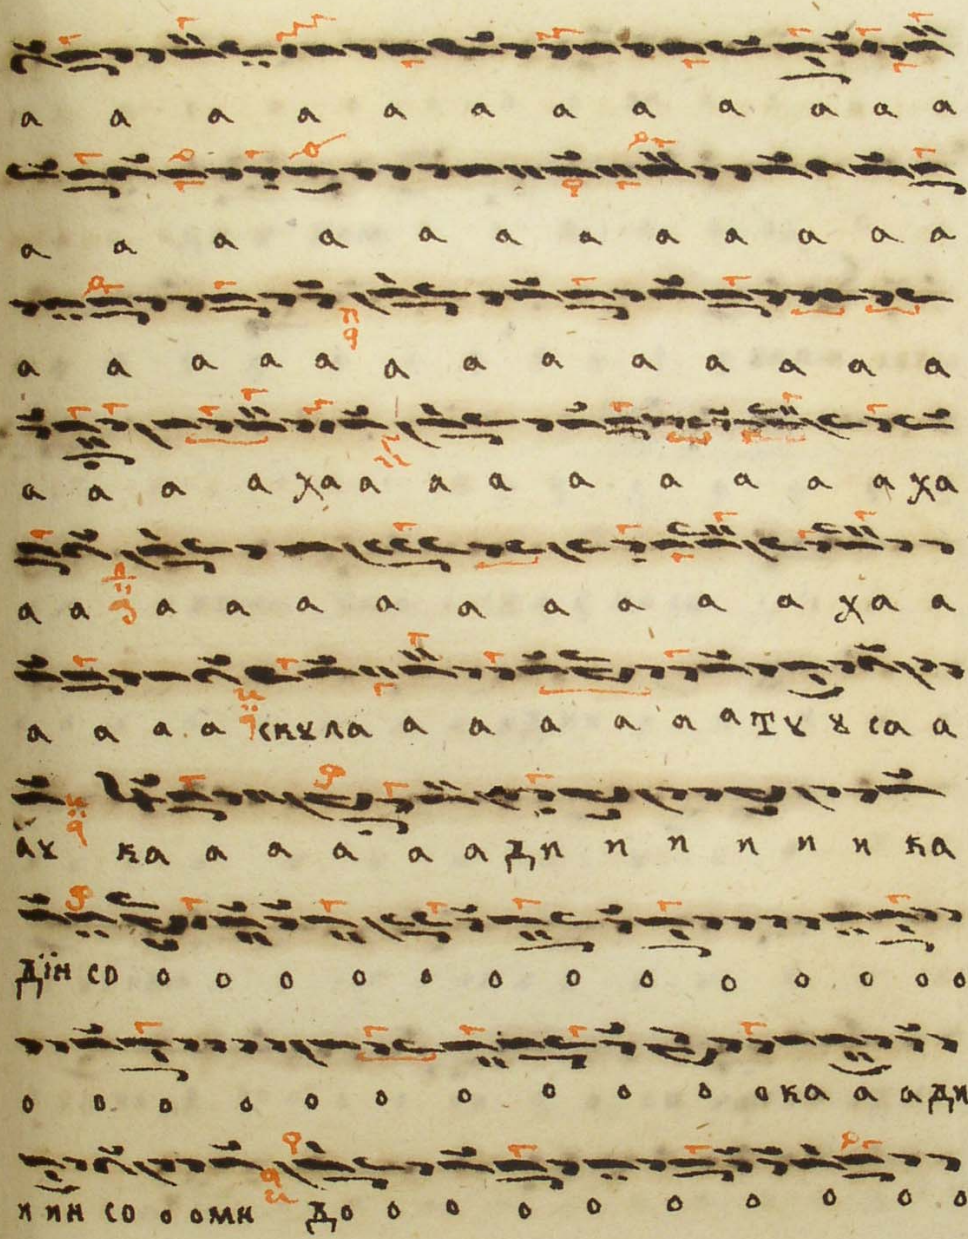 а а а а а а а а а а а а
а а а а а а а а а а а а
а а а а а а а а а а а а а
а а а а ха а а а а а а а а ха
а а а а а а а а а а а ха а
а а а а скꙋла а а а а а а тꙋ ꙋ са а
аꙋ ка а а а а а ди и и и и и ка
дїи со о о о о о о о о о о о о о
о о о о о о о о о о о о ка а а ди
и ии со о оми до о о о о о о о о